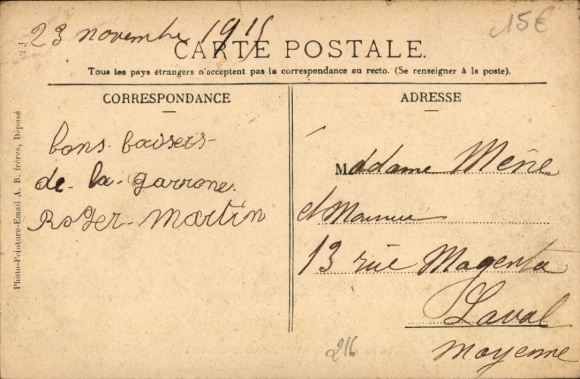 23 novembre 1915
15€
CARTE POSTALE.
Tous les pays étrangers n'acceptent pas la correspondance au recto. (Se renseigner à la poste).
CORRESPONDANCE
bons baisers
de la garrone
Roger martin
ADRESSE
Maddame
et
13 rue Magenta
Laval
Mayenne
216
Photo-Peinture-Email A. B. frères, Déposé